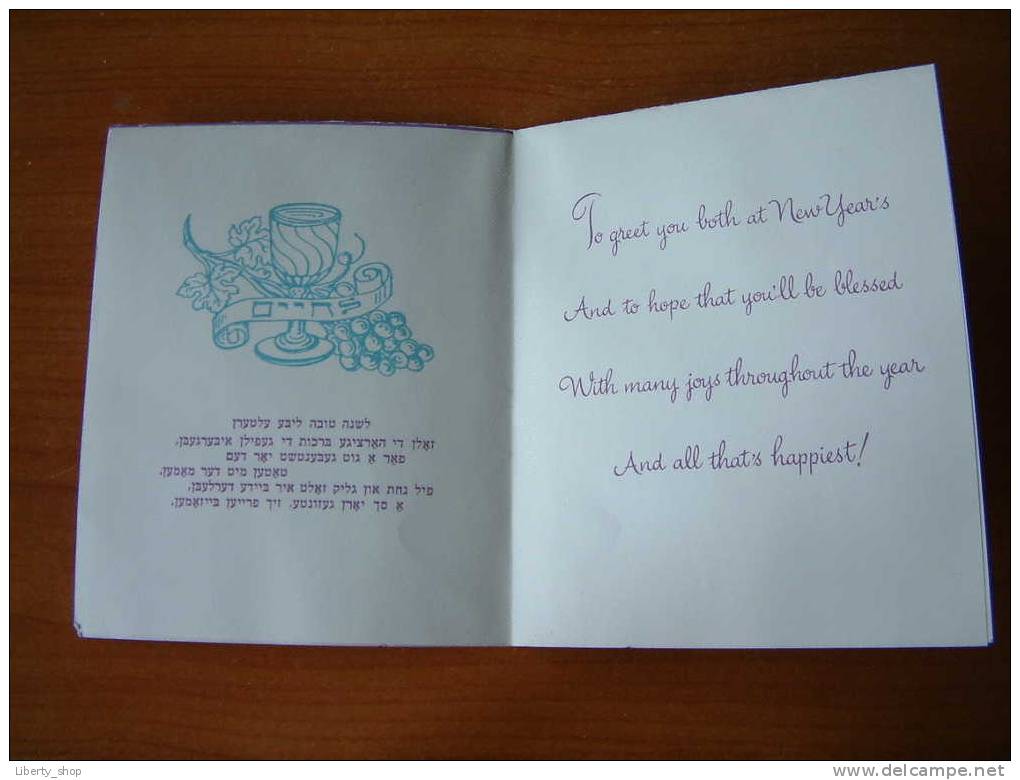 לחיים
לשנה טובה ליבע עלטערן
זאָלן די האַרציגע ברכות די געפילן איבערגעבן,
פאַר אַ גוט געבענטשט יאָר דעם
טאַטען מיט דער מאַמען,
פיל נחת און גליק זאָלט איר ביידע דערלעבן,
אַ סך יאָרן געזונטע, זיך פרייען בייזאַמען.
To greet you both at New Year's
And to hope that you'll be blessed
With many joys throughout the year
And all that's happiest!
Liberty_shop
delcampe.net